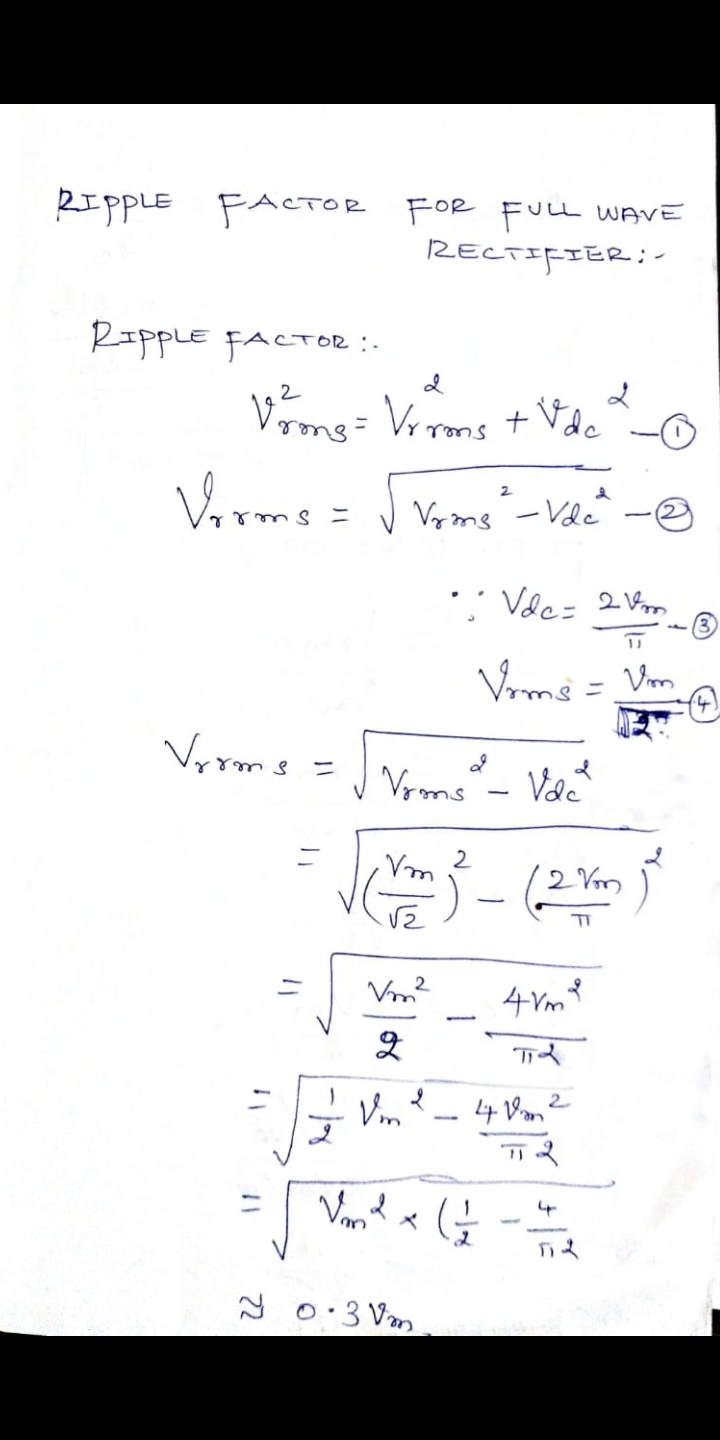 RIPPLE FACTOR FOR FULL WAVE
RECTIFIER:-
RIPPLE FACTOR:-
V²rms = Vr rms² + Vdc² - ①
Vr rms = √(Vrms² - Vdc²) - ②
∵ Vdc = 2Vm/π - ③
Vrms = Vm/√2 - ④
Vr rms = √(Vrms² - Vdc²)
= √((Vm/√2)² - (2Vm/π)²)
= √(Vm²/2 - 4Vm²/π²)
= √(1/2 Vm² - 4Vm²/π²)
= √(Vm² × (1/2 - 4/π²
≈ 0.3Vm